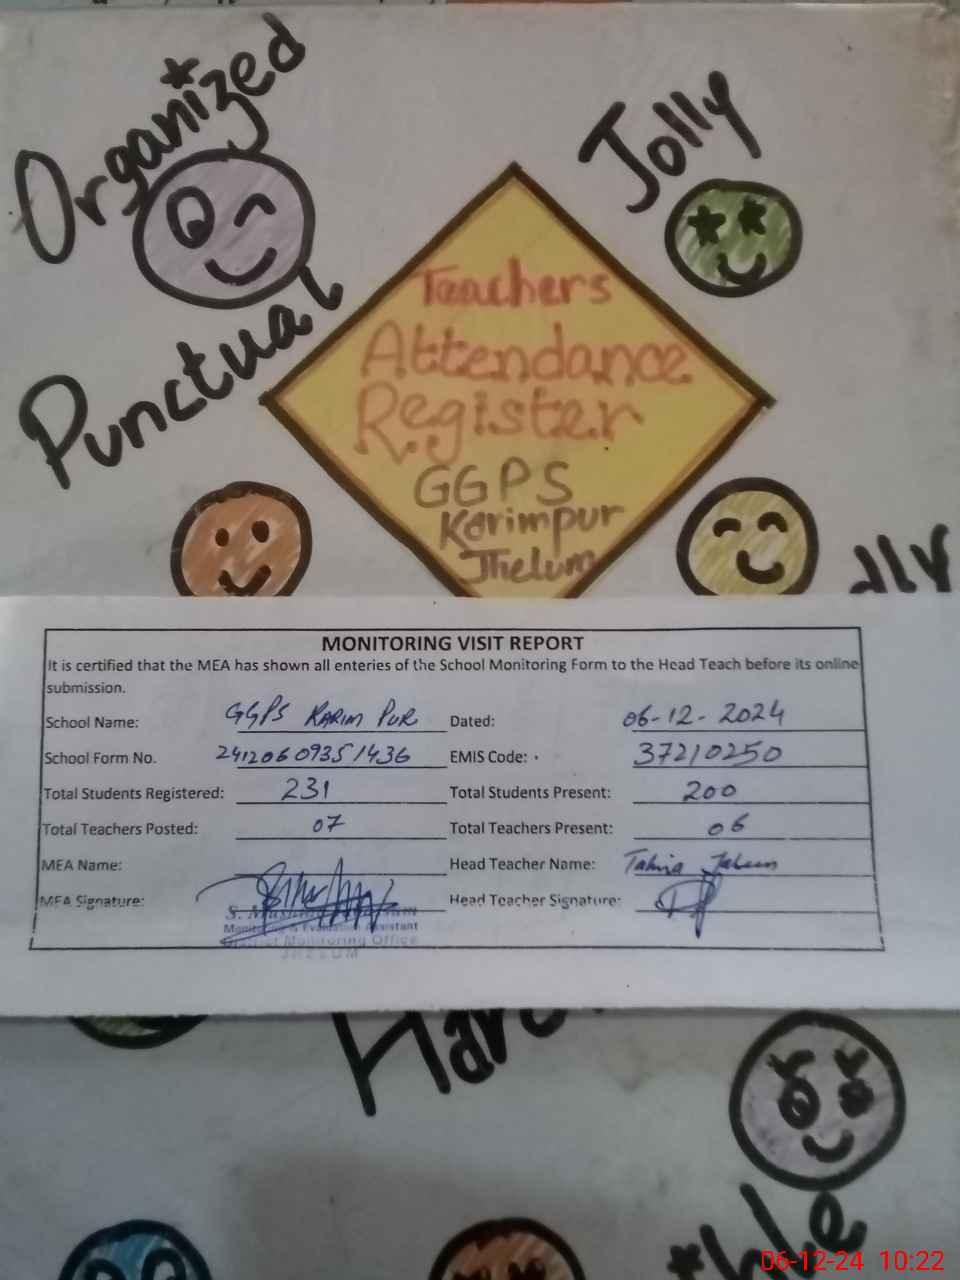 Organized
Jolly
Punctual
Teachers
Attendance
Register
GGPS
Karimpur
Jhelum
MONITORING VISIT REPORT
It is certified that the MEA has shown all enteries of the School Monitoring Form to the Head Teach before its online
submission.
School Name: GGPS KARIM PUR Dated: 06-12-2024
School Form No. 24120609351436 EMIS Code: 37210250
Total Students Registered: 231 Total Students Present: 200
Total Teachers Posted: 07 Total Teachers Present: 06
MEA Name: Head Teacher Name: Tahira
MEA Signature: Head Teacher Signature:
Monitoring & Evaluation Assistant
District Monitoring Office
JHELUM
Hard
06-12-24 10:22